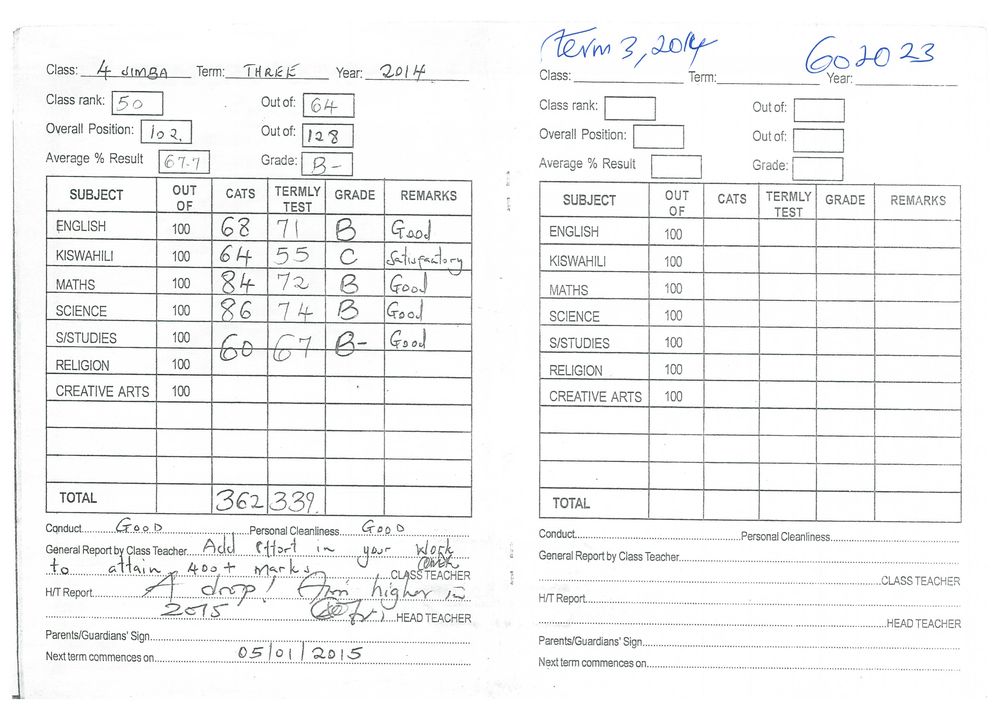 Class: 4 SIMBA Term: THREE Year: 2014
Class rank: 50 Out of: 64
Overall Position: 102. Out of: 128
Average % Result 67.7 Grade: B-
SUBJECT OUT OF CATS TERMLY TEST GRADE REMARKS
ENGLISH 100 68 71 B Good
KISWAHILI 100 64 55 C Satisfactory
MATHS 100 84 72 B Good
SCIENCE 100 86 74 B Good
S/STUDIES 100 60 67 B- Good
RELIGION 100
CREATIVE ARTS 100
TOTAL 362 339.
Conduct GOOD Personal Cleanliness GOOD
General Report by Class Teacher Add effort in your work
to attain 400+ marks CLASS TEACHER
H/T Report A drop! Aim higher in
2015 HEAD TEACHER
Parents/Guardians' Sign
Next term commences on 05/01/2015
Term 3, 2014 602023
Class: Term: Year:
Class rank: Out of:
Overall Position: Out of:
Average % Result Grade:
SUBJECT OUT OF CATS TERMLY TEST GRADE REMARKS
ENGLISH 100
KISWAHILI 100
MATHS 100
SCIENCE 100
S/STUDIES 100
RELIGION 100
CREATIVE ARTS 100
TOTAL
Conduct Personal Cleanliness
General Report by Class Teacher
CLASS TEACHER
H/T Report
HEAD TEACHER
Parents/Guardians' Sign
Next term commences on